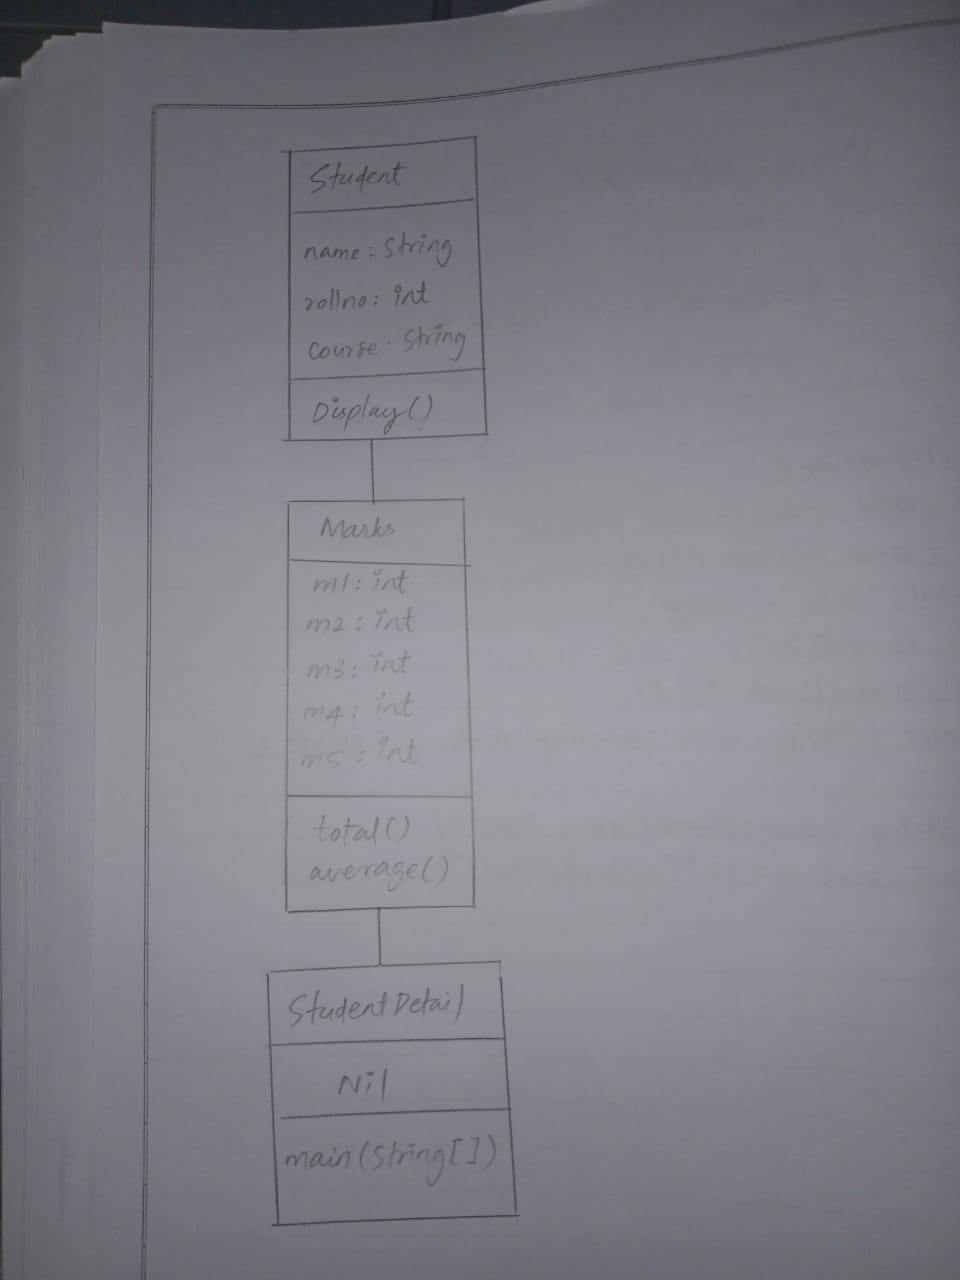 Student
name: String
rollno: int
Course: String
Display()
Marks
m1: int
m2: int
m3: int
m4: int
m5: int
total()
average()
StudentDetail
Nil
main(String[])